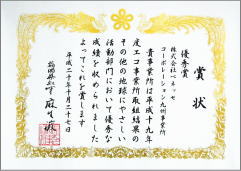 賞状
優秀賞
株式会社ベネッセ
コーポレーション九州事業所
貴事業所は平成十九年
度エコ事業所取組結果の
その他の地球にやさしい
活動部門において優秀な
成績を収められました
よってこれを賞します
平成二十年十月二十七日
福岡県知事 麻生渡